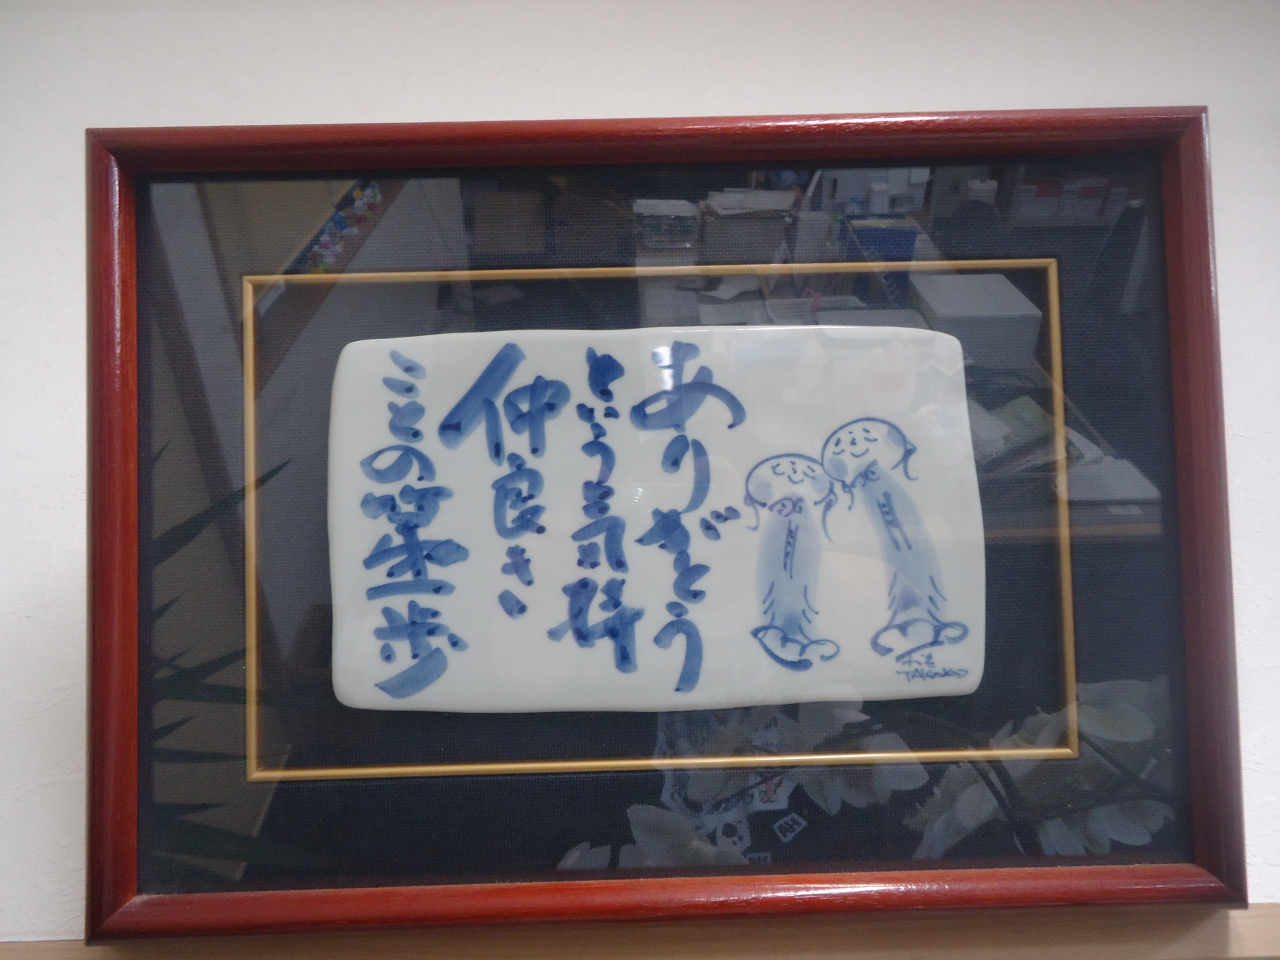 ありがとう
という気持
仲良き
ことの第一歩